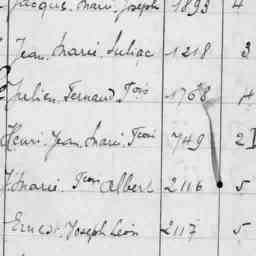 Jacques. Marie. Joseph 1893 4
Jean. Marie Suliac 1218 3
Julien. Fernand. Fois 1768 4
Henri. Jean. Marie. Fcois 749 2
Marie. Fcois Albert 2116 5
Ernest. Joseph Léon 2117 5